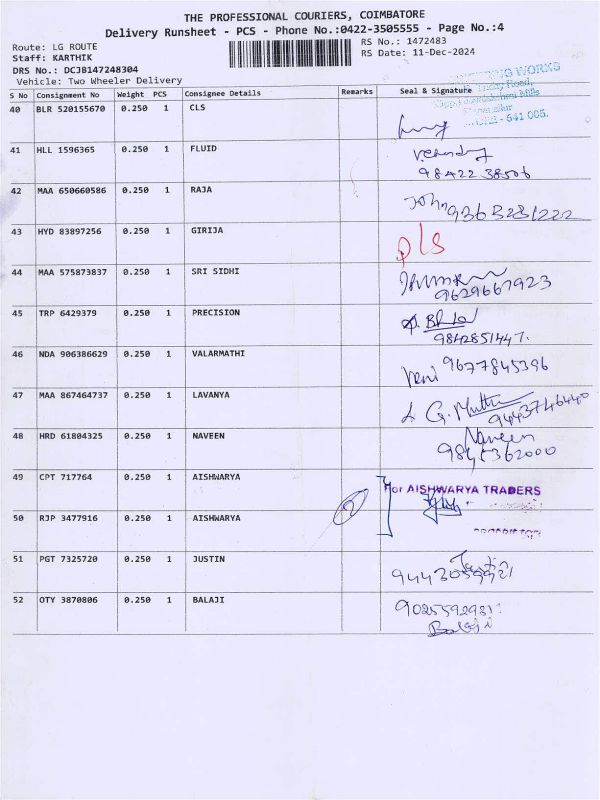 THE PROFESSIONAL COURIERS, COIMBATORE
Delivery Runsheet - PCS - Phone No.:0422-3505555 - Page No.:4
Route: LG ROUTE
RS No.: 1472483
Staff: KARTHIK
RS Date: 11-Dec-2024
DRS No.: DCJB147248304
Vehicle: Two Wheeler Delivery
WORKS
Road,
Mills
- 641 005.
S No Consignment No Weight PCS Consignee Details Remarks Seal & Signature
40 BLR 520155670 0.250 1 CLS
41 HLL 1596365 0.250 1 FLUID
98422 38506
42 MAA 650660586 0.250 1 RAJA
John 9363281222
43 HYD 83897256 0.250 1 GIRIJA
44 MAA 575873837 0.250 1 SRI SIDHI
9629667923
45 TRP 6429379 0.250 1 PRECISION
9842851447.
46 NDA 906386629 0.250 1 VALARMATHI
Veni 9677845396
47 MAA 867464737 0.250 1 LAVANYA
G. Muthu
9443746440
48 HRD 61804325 0.250 1 NAVEEN
Naveen
49 CPT 717764 0.250 1 AISHWARYA
For AISHWARYA TRADERS
50 RJP 3477916 0.250 1 AISHWARYA
2
PROPRIETOR
51 PGT 7325720 0.250 1 JUSTIN
Justin
52 OTY 3870806 0.250 1 BALAJI
Balaji